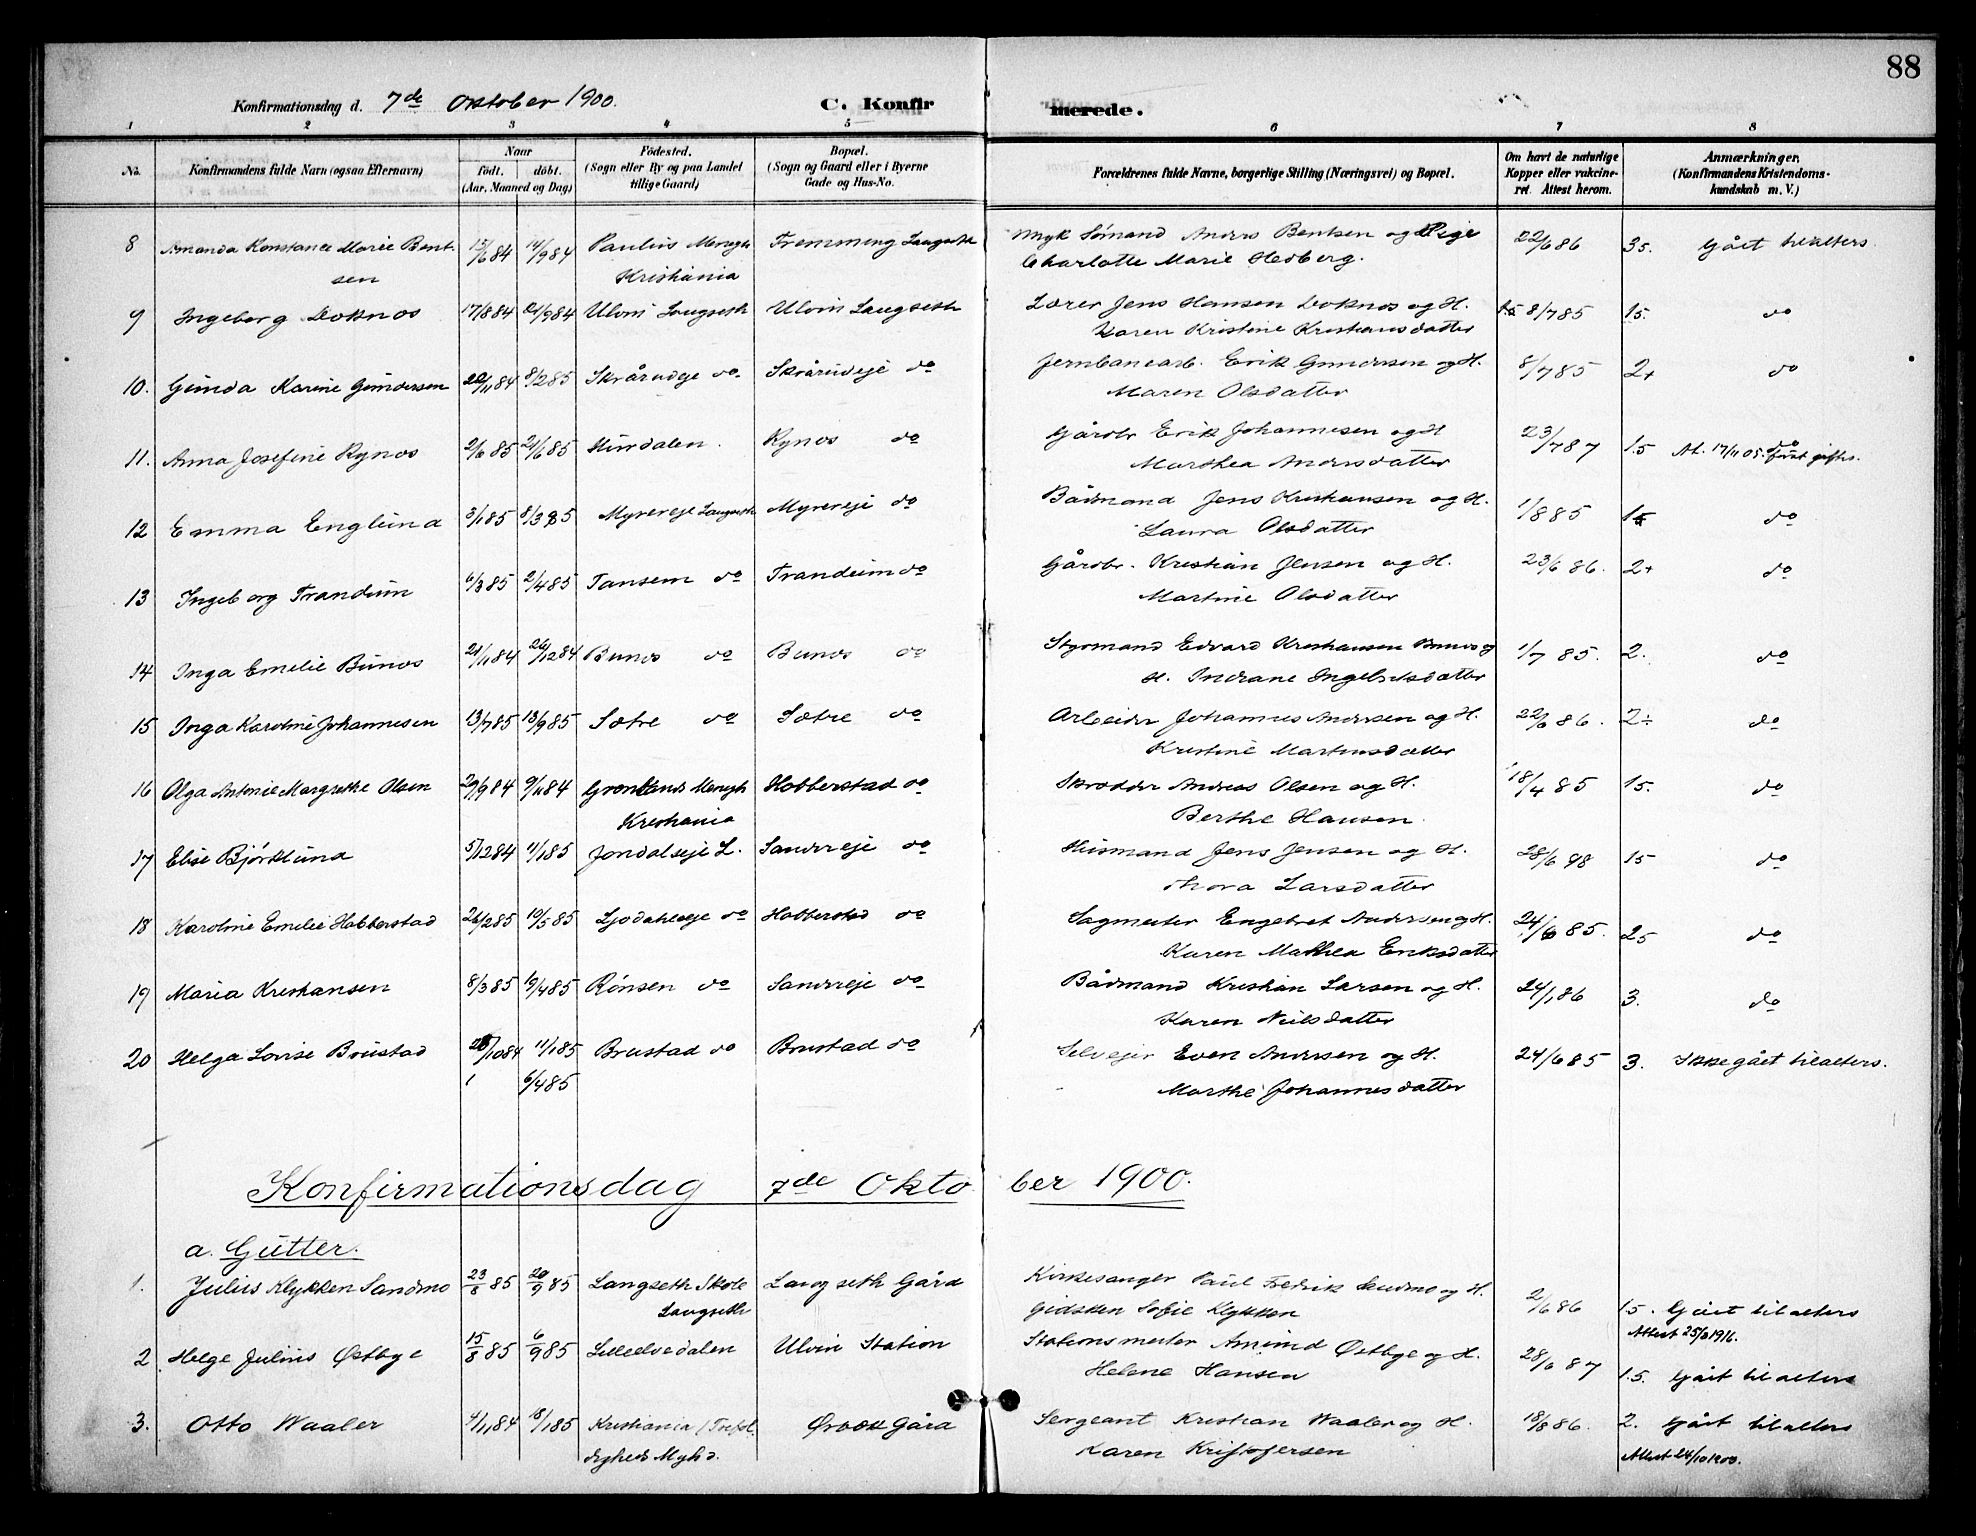 88
Konfirmationsdag d. 7de Oktober 1900.
C. Konfirmerede.
1 2 3 4 5 6 7 8
No. Konfirmandens fulde Navn (ogsaa Efternavn) Naar født. døbt. (Aar, Maaned og Dag) Fødested. (Sogn eller By og paa Landet tillige Gaard) Bopæl. (Sogn og Gaard eller i Byerne Gade og Hus-No. Forældrenes fulde Navne, borgerlige Stilling (Næringsvei) og Bopæl. Om havt de naturlige Kopper eller vakcineret. Attest herom. Anmærkninger. (Konfirmandens Kristendomskundskab m. V.)
8 Amanda Konstance Marie Bent- 15/6 84 14/9 84 Paulus Menigh Fremming Langseth Ungk Sømand Anders Bentsen og Pige 22/6 86 3,5. Gået tilalters.
sen Kristiania Charlotte Marie Hedberg.
9 Ingeborg Doknos 17/8 84 21/9 84 Ulvin Langseth Ulvin Langseth Lærer Jens Hansen Doknos og H. 8/7 85 1.5. do
Karen Kristine Kristiansdatter
10. Gunda Karine Gundersen 20/11 84 8/2 85 Skrårudeje do Skrårudeje do Jernbanearb. Erik Gundersen og H. 8/7 85 2+ do
Maren Olsdatter
11. Anna Josefine Rynos 2/6 85 21/6 85 Hurdalen. Rynos do Gårdbr Erik Johannesen og H 23/7 87 1.5 do
Marthea Andersdatter At. 17/11 05. først giftes.
12 Emma Englund 3/1 85 8/3 85 Myrereje Langseth Myrereje do Bådmand Jens Kristiansen og H. 1/8 85 15 do
Laura Olsdatter
13 Ingeborg Trandum 6/3 85 2/4 85 Tansem do Trandum do Gårdbr. Kristian Jensen og H. 23/6 86. 2+ do
Martine Olsdatter
14 Inga Emelie Bunos 21/11 84 26/12 84 Bunos do Bunos do Styrmand Edvard Kristiansen Bunos og 1/7 85. 2. do
H. Indiane Ingebretsdatter
15 Inga Karoline Johannesen 13/7 85 13/9 85 Sætre do Sætre do Arbeider Johannes Andersen og H. 22/6 86. 2÷ do
Kristine Martinsdatter
16 Olga Antonie Margrethe Olsen 29/9 84 9/11 84 Grønlands Menigh Hobberstad do Skrædder Andreas Olsen og H. 18/4 85 1.5. do
Kristiania Berthe Hansen.
17 Elise Bjørklund 5/12 84 11/1 85 Jondalseje L. Sandereje do Husmand Jens Jensen og H. 28/6 98 15 do
Thora Larsdatter
18 Karoline Emelie Hobberstad 26/2 85 10/5 85 Ljødahleje do Hobberstad do Sagmester Engebret Andersen og H. 24/6 85. 25 do
Karen Mathea Eriksdatter
19 Maria Kristiansen 8/3 85 19/4 85 Rønsen do Sandereje do Bådmand Kristian Larsen og H. 24/1 86 3. do
Karen Nilsdatter
20 Helga Lovise Brustad 28/10 84 11/1 85 Brustad do Brustad do Selveier Even Andersen og H. 24/6 85 3. Ikke gået tilalters.
6/4 85 Marthe Johannesdatter
Konfirmationsdag 7de Oktober 1900.
a. Gutter.
1. Julius Klykken Sandmo 23/8 85 20/9 85 Langseth Skole Langseth Gård Kirkesanger Paul Fredrik Sandmo og H. 2/6 86 15. Gået til alters
Langseth Gidsken Sofie Klykken Attest 25/6 1916.
2 Helge Julius Østbye 15/8 85 6/9 85 Lilleelvedalen Ulvin Station Stationsmester Amund Østbye og H. 28/6 87 1.5. Gået til alters
Helene Hansen
3. Otto Waaler 4/11 84 18/1 85 Kristiania (Trefol- Ørbæk Gård Sergeant Kristian Waaler og H. 18/8 86. 2. Gået til alters
digheds Mgh d. Karen Kristofersen Attest 24/10 1900.